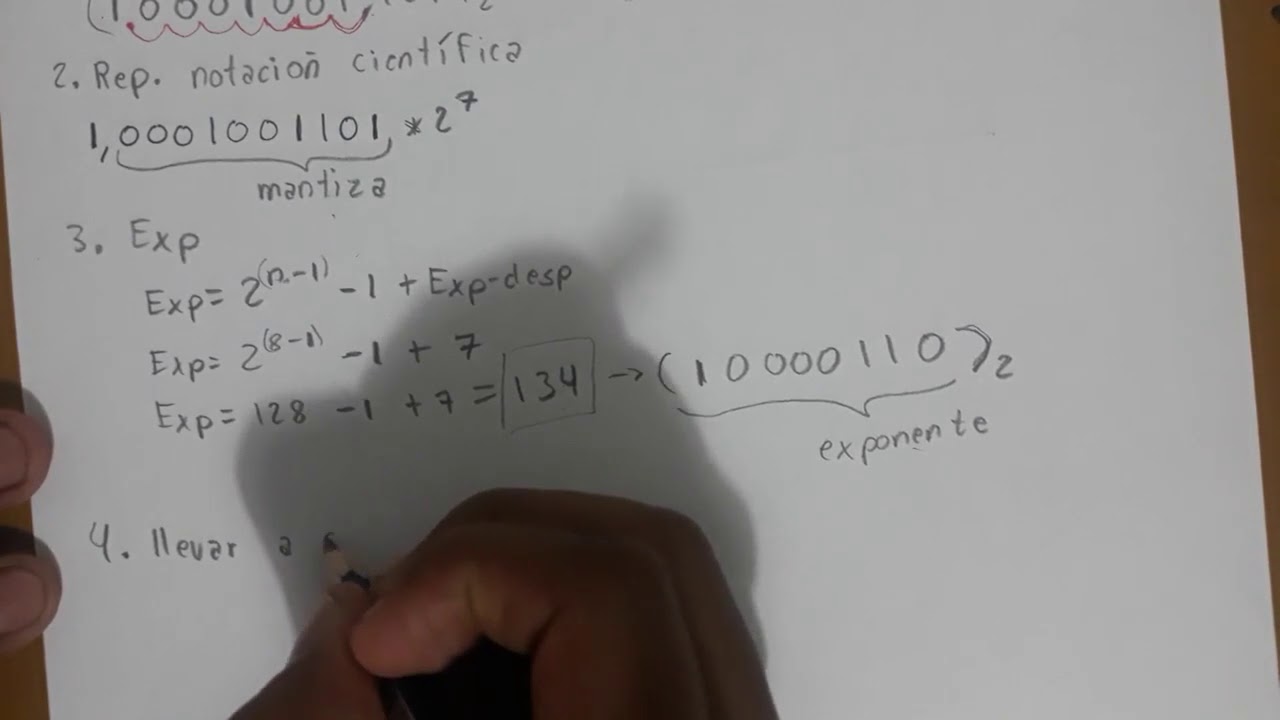 (10001001,
2. Rep. notación científica
1,0001001101, * 2^7
mantiza
3. Exp
Exp= 2^(n-1) -1 + Exp-desp
Exp= 2^(8-1) -1 + 7
Exp= 128 -1 +7 = 134 → (10000110)₂
exponente
4. llevar a